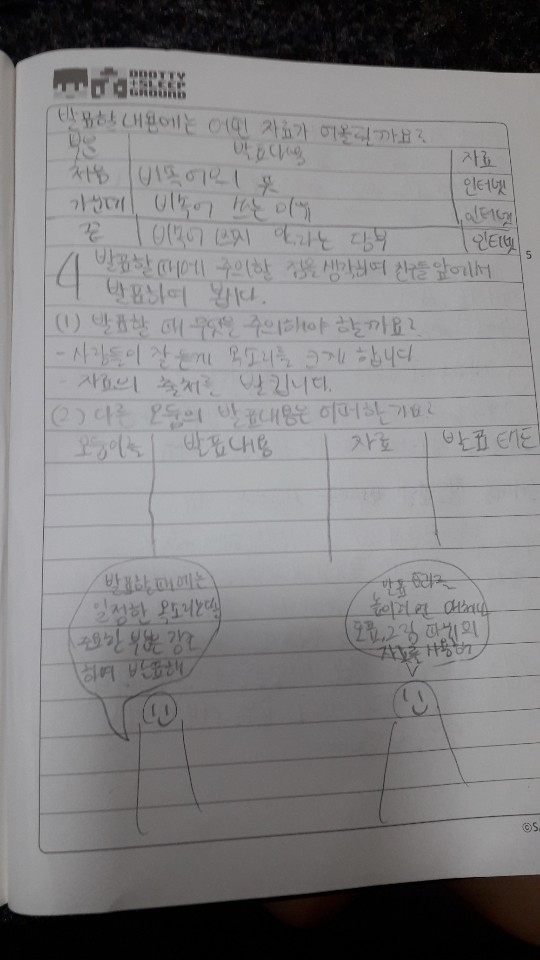 DDOTTY
+SLEEP
GROUND
발표할 내용에는 어떤 자료가 어울릴까요?
부분 발표내용 자료
처음 비속어의 뜻 인터넷
가운데 비속어 쓰는 이유 인터넷
끝 비속어 쓰지 말라는 당부 인터넷
4 발표할 때에 주의할 점을 생각하며 친구들 앞에서
발표하여 봅시다.
(1) 발표할 때 무엇을 주의해야 할까요?
- 사람들이 잘 듣게 목소리를 크게 합니다
- 자료의 출처를 밝힙니다.
(2) 다른 모둠의 발표내용은 어떠한가요?
모둠이름 발표내용 자료 발표 태도
발표할 때에는
일정한 목소리보다
중요한 부분은 강조
하며 발표해
발표 효과를
높이려면
도표, 그림 따위의
자료를 사용해
5
©SA